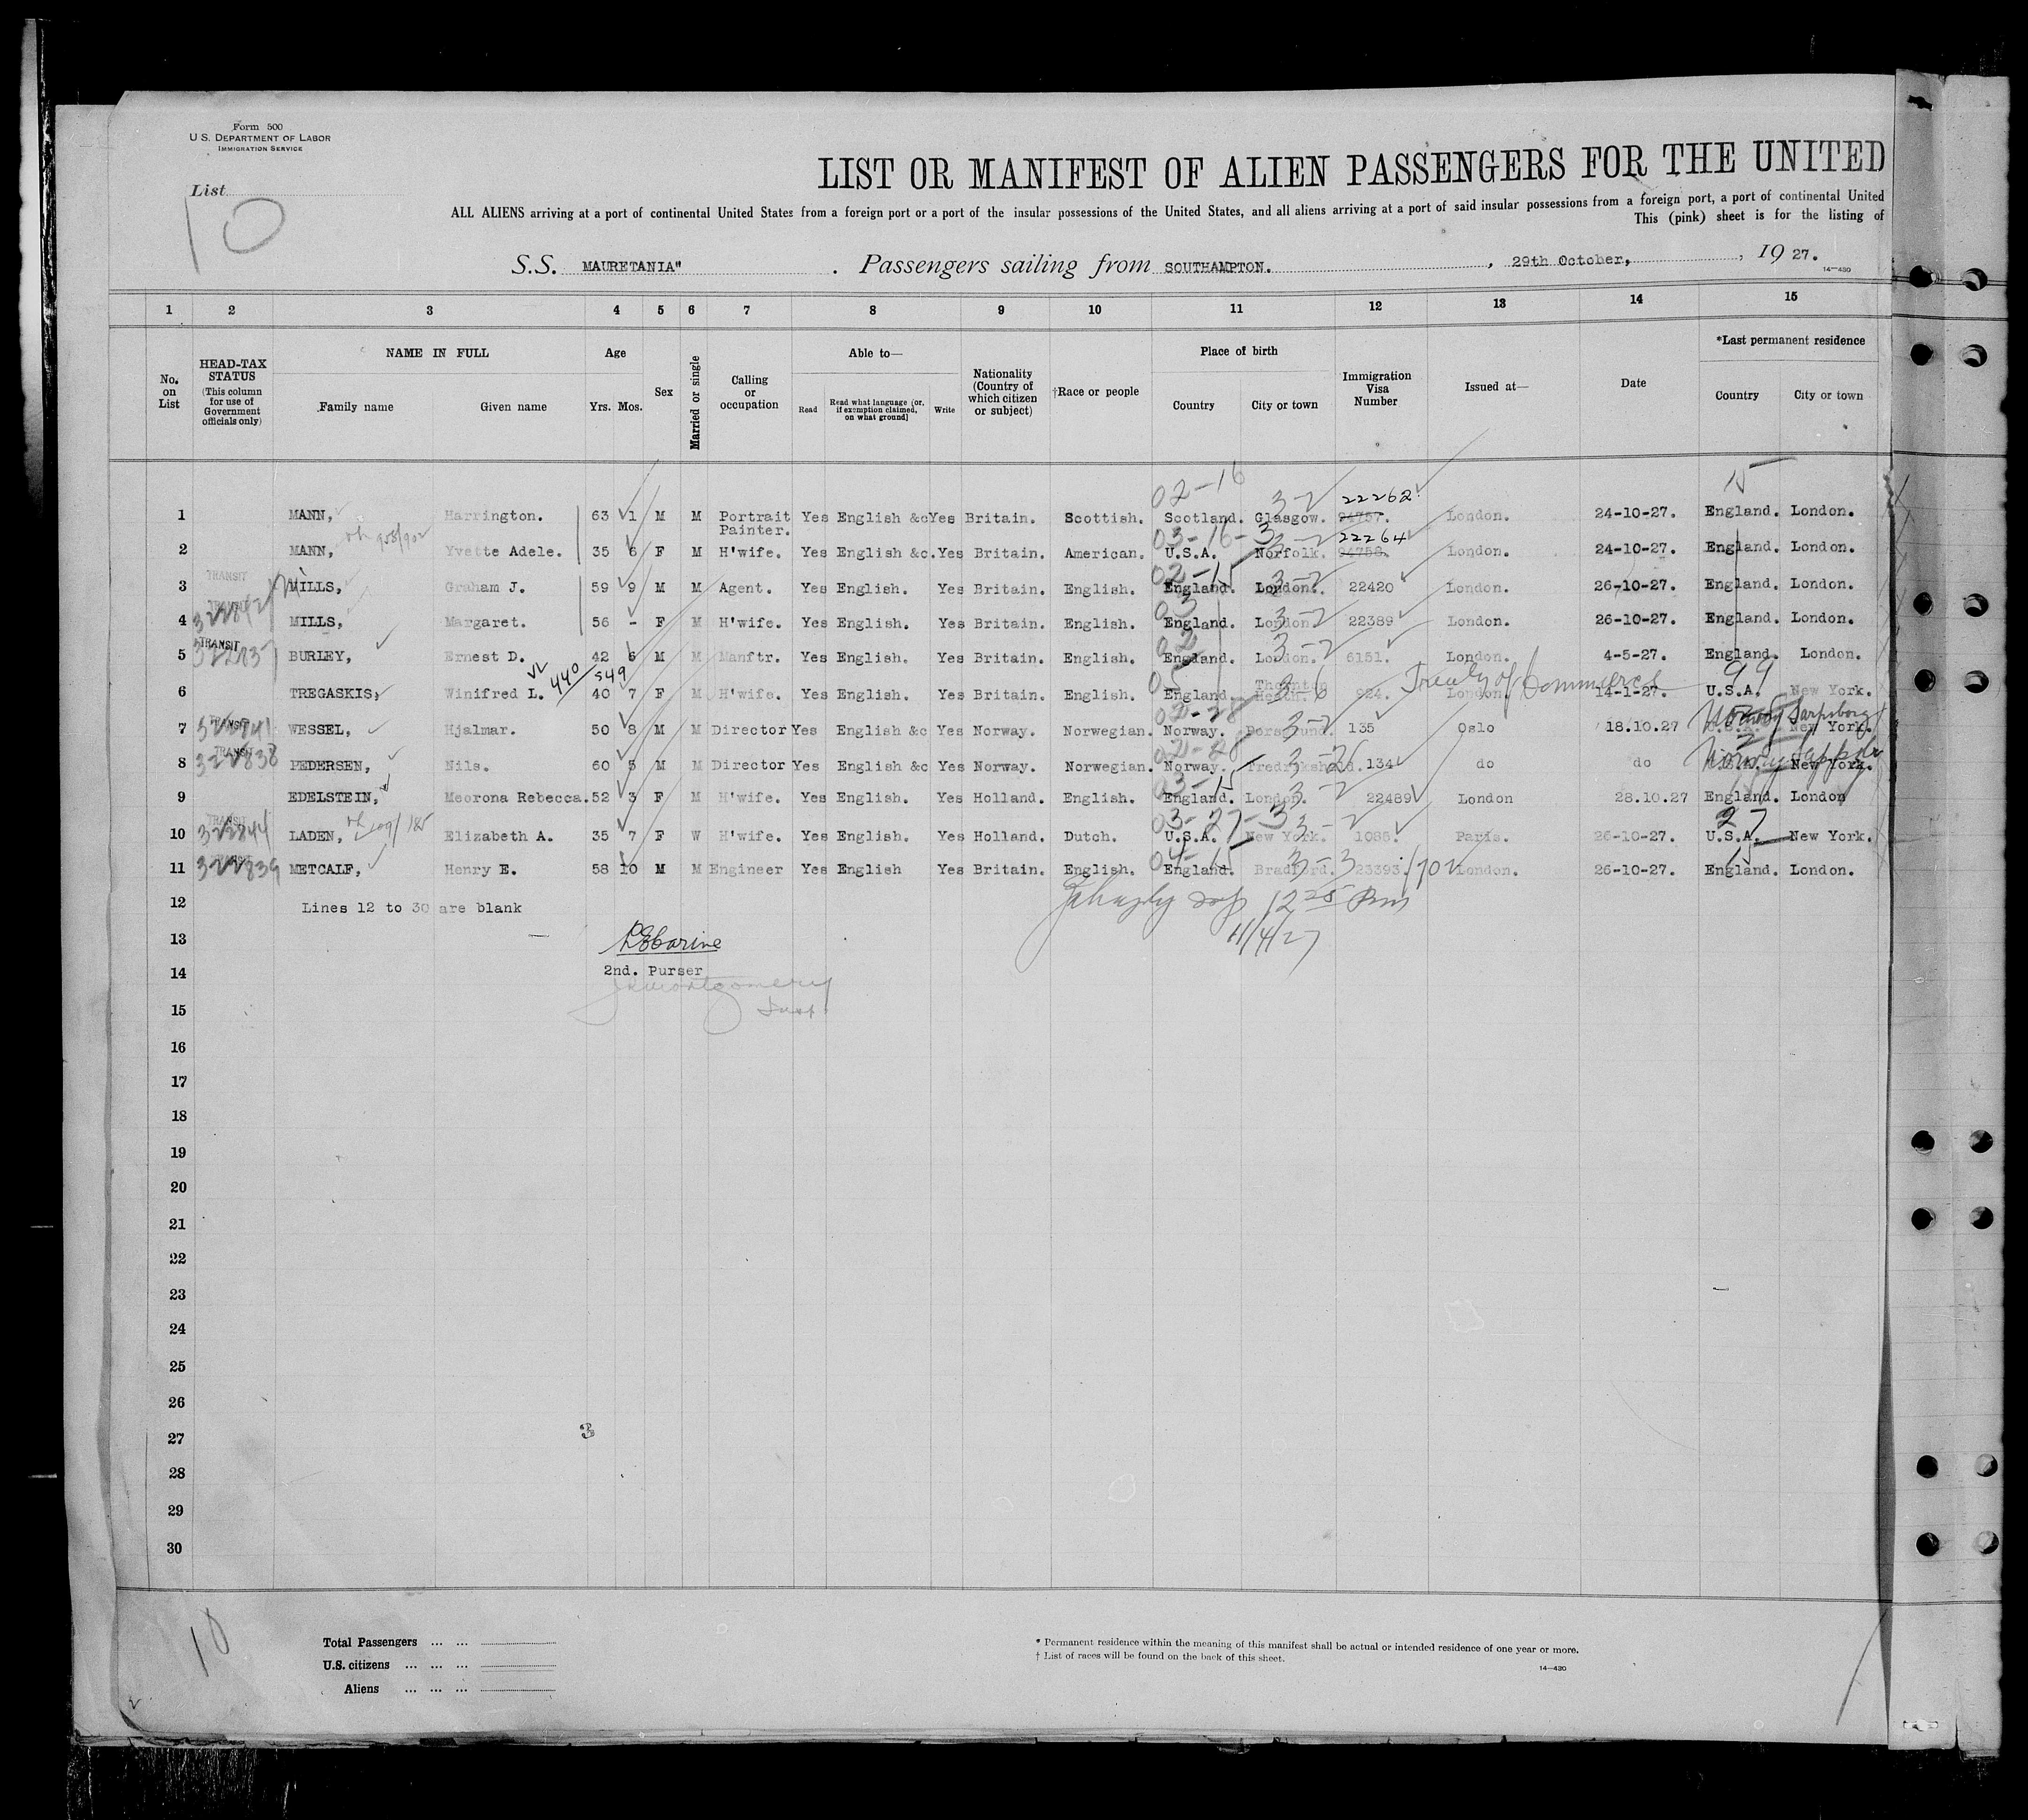 Form 500
U.S. DEPARTMENT OF LABOR
IMMIGRATION SERVICE
List
10
LIST OR MANIFEST OF ALIEN PASSENGERS FOR THE UNITED
ALL ALIENS arriving at a port of continental United States from a foreign port or a port of the insular possessions of the United States, and all aliens arriving at a port of said insular possessions from a foreign port, a port of continental United
This (pink) sheet is for the listing of
S.S. MAURETANIA" . Passengers sailing from SOUTHAMPTON. , 29th October, , 19 27.
14—430
1 2 3 4 5 6 7 8 9 10 11 12 13 14 15
No. on List
HEAD-TAX STATUS (This column for use of Government officials only)
NAME IN FULL
Family name Given name
Age
Yrs. Mos.
Sex
Married or single
Calling or occupation
Able to—
Read Read what language [or, if exemption claimed, on what ground] Write
Nationality (Country of which citizen or subject)
†Race or people
Place of birth
Country City or town
Immigration Visa Number
Issued at—
Date
*Last permanent residence
Country City or town
02-16 3-2 22262 15
1 MANN, Harrington. 63 1 M M Portrait Painter. Yes English &c Yes Britain. Scottish. Scotland. Glasgow. 94757. London. 24-10-27. England. London.
03-16-3 22264
2 MANN, Yvette Adele. 35 6 F M H'wife. Yes English &c. Yes Britain. American. U.S.A. Norfolk. 94758. London. 24-10-27. England. London.
TRANSIT 02-15 3-2
3 MILLS, Graham J. 59 9 M M Agent. Yes English. Yes Britain. English. England. London. 22420 London. 26-10-27. England. London.
4 MILLS, Margaret. 56 - F M H'wife. Yes English. Yes Britain. English. England. London. 3-2 22389 London. 26-10-27. England. London.
TRANSIT
5 BURLEY, Ernest D. 42 6 M M Manftr. Yes English. Yes Britain. English. England. London. 3-2 6151. London. 4-5-27. England. London.
440/549 Treaty of Commerce 99
6 TREGASKIS, Winifred L. 40 7 F M H'wife. Yes English. Yes Britain. English. England. Thornton Heath. 924. London. 14-1-27. U.S.A. New York.
TRANSIT 02-28 3-2 Norway Sarpsborg
7 322841 WESSEL, Hjalmar. 50 8 M M Director Yes English &c Yes Norway. Norwegian. Norway. 135 Oslo 18.10.27 New York.
TRANSIT 02-28 Norway
8 322838 PEDERSEN, Nils. 60 5 M M Director Yes English &c Yes Norway. Norwegian. Norway. 134 do do New York.
03-15 3-2
9 EDELSTEIN, Meorona Rebecca. 52 3 F M H'wife. Yes English. Yes Holland. English. England. London. 22489 London 28.10.27 England. London
TRANSIT 03-27-3 3-2 27
10 322844 LADEN, Elizabeth A. 35 7 F W H'wife. Yes English. Yes Holland. Dutch. U.S.A. New York. 1086. Paris. 26-10-27. U.S.A. New York.
04-15 3-3 15
11 322839 METCALF, Henry E. 58 10 M M Engineer Yes English Yes Britain. English. England. Bradford. 23393. London. 26-10-27. England. London.
12 Lines 12 to 30 are blank 12 25 Pm
13 11/4/27
14 2nd. Purser
JHMontgomery
15 Insp
16
17
18
19
20
21
22
23
24
25
26
27 3
28
29
30
10
Total Passengers ... ...
U.S. citizens ... ... ...
Aliens ... ... ...
* Permanent residence within the meaning of this manifest shall be actual or intended residence of one year or more.
† List of races will be found on the back of this sheet.
14—430